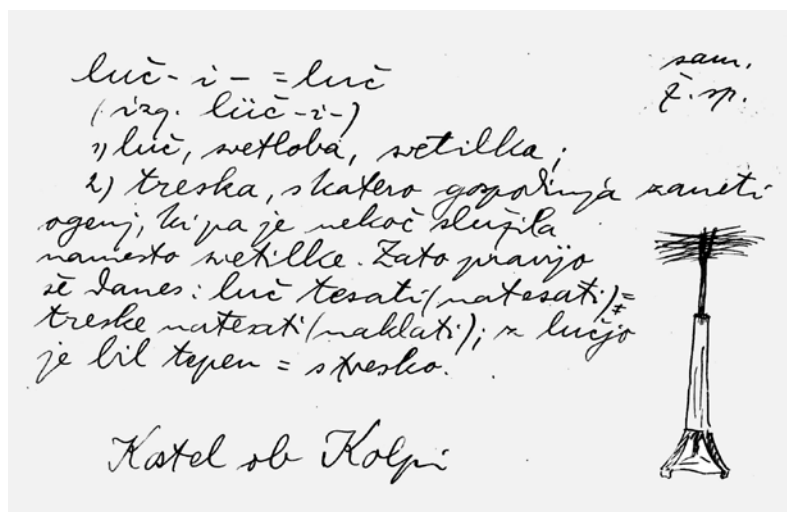 luč - i - = luč
sam.
ž. sp.
(izg. lüč -i-)
1) luč, svetloba, svetilka;
2) treska, s katero gospodinja zaneti
ogenj, ki pa je nekoč služila
namesto svetilke. Zato pravijo
še danes: luč tesati (natesati) =
treske natesati (naklati); z lučjo
je bil tepen = s tresko.
Kostel ob Kolpi